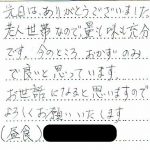 先日は、ありがとうございました。
老人世帯なので、量も味も充分
です。今のところ、おかずのみ
で良いと思っています。
お世話になると思いますので
よろしくお願いいたします
(昼食)